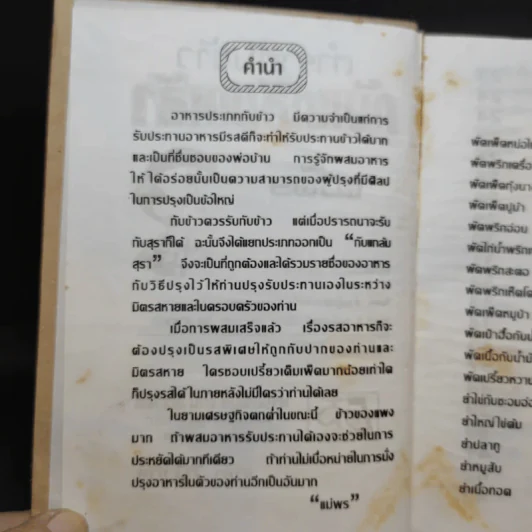 คำนำ
อาหารประเภทกับข้าว มีความจำเป็นแก่การ
รับประทานอาหารมีรสดีก็จะทำให้รับประทานข้าวได้มาก
และเป็นที่ชื่นชอบของพ่อบ้าน การรู้จักผสมอาหาร
ให้ ได้อร่อยนั้นเป็นความสามารถของผู้ปรุงที่มีศิลป
ในการปรุงเป็นข้อใหญ่
กับข้าวควรรับกับข้าว แต่เมื่อปรารถนาจะรับ
กับสุราก็ได้ ฉะนั้นจึงได้แยกประเภทออกเป็น “กับแกล้ม
สุรา” จึงจะเป็นที่ถูกต้องและได้รวมรายชื่อของอาหาร
กับวิธีปรุงไว้ให้ท่านปรุงรับประทานเองในระหว่าง
มิตรสหายและในครอบครัวของท่าน
เมื่อการผสมเสร็จแล้ว เรื่องรสอาหารก็จะ
ต้องปรุงเป็นรสพิเศษให้ถูกกับปากของท่านและ
มิตรสหาย ใครชอบเปรี้ยวเค็มเผ็ดมากน้อยเท่าใด
ก็ปรุงรสได้ ในภายหลังไม่มีใครว่าท่านได้เลย
ในยามเศรษฐกิจตกต่ำในขณะนี้ ข้าวของแพง
มาก ถ้าผสมอาหารรับประทานได้เองจะช่วยในการ
ประหยัดได้มากทีเดียว ถ้าท่านไม่เบื่อหน่ายในการนั่ง
ปรุงอาหารในตัวของท่านอีกเป็นอันมาก
“แม่พร”
ผัดเผ็ดหน่อไ
ผัดพริกเครื่อ
ผัดเผ็ดกุ้งนา
ผัดเผ็ดปูม้า
ผัดพริกอ่อน
ผัดไก่น้ำพริกเ
ผัดพริกสะตอ
ผัดพริกเห็ดโค
ผัดเผ็ดหมูป่า
ผัดเป๋าฮื้อกับน้
ผัดเนื้อกับน้ำมั
ผัดเปรี้ยวหวาน
ยำไข่กับชะอมอ่อ
ยำใหญ่ ไข่ต้ม
ยำปลาทู
ยำหมูสับ
ยำเนื้อทอด